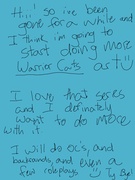 Hi!! so ive been
gone for a while and
I think im going to
start doing more
Warrior Cats art
I love that series
and I definately
want to do more
with it
I will do oc's, and
backrounds, and even a
few roleplays
Ty Bye!